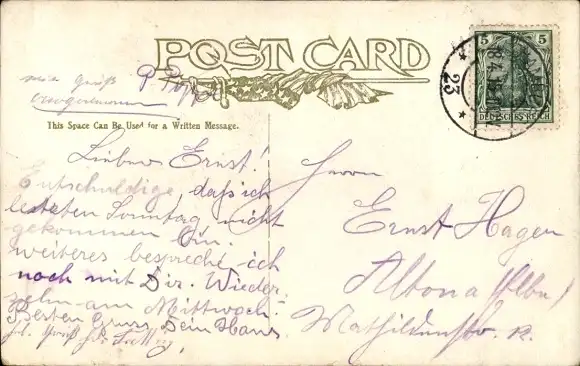 POST CARD
This Space Can Be Used for a Written Message.
5 5
DEUTSCHES REICH
23
Lieber Ernst!
Entschuldige daß ich
letzten Sonntag nicht
gekommen bin.
weiteres bespreche ich
noch mit Dir. Wieder
sehn am Mittwoch.
Besten Gruss Dein Hans
Herrn
Ernst Hagen
Altona (Elbe)
Mathildenstr. 12.